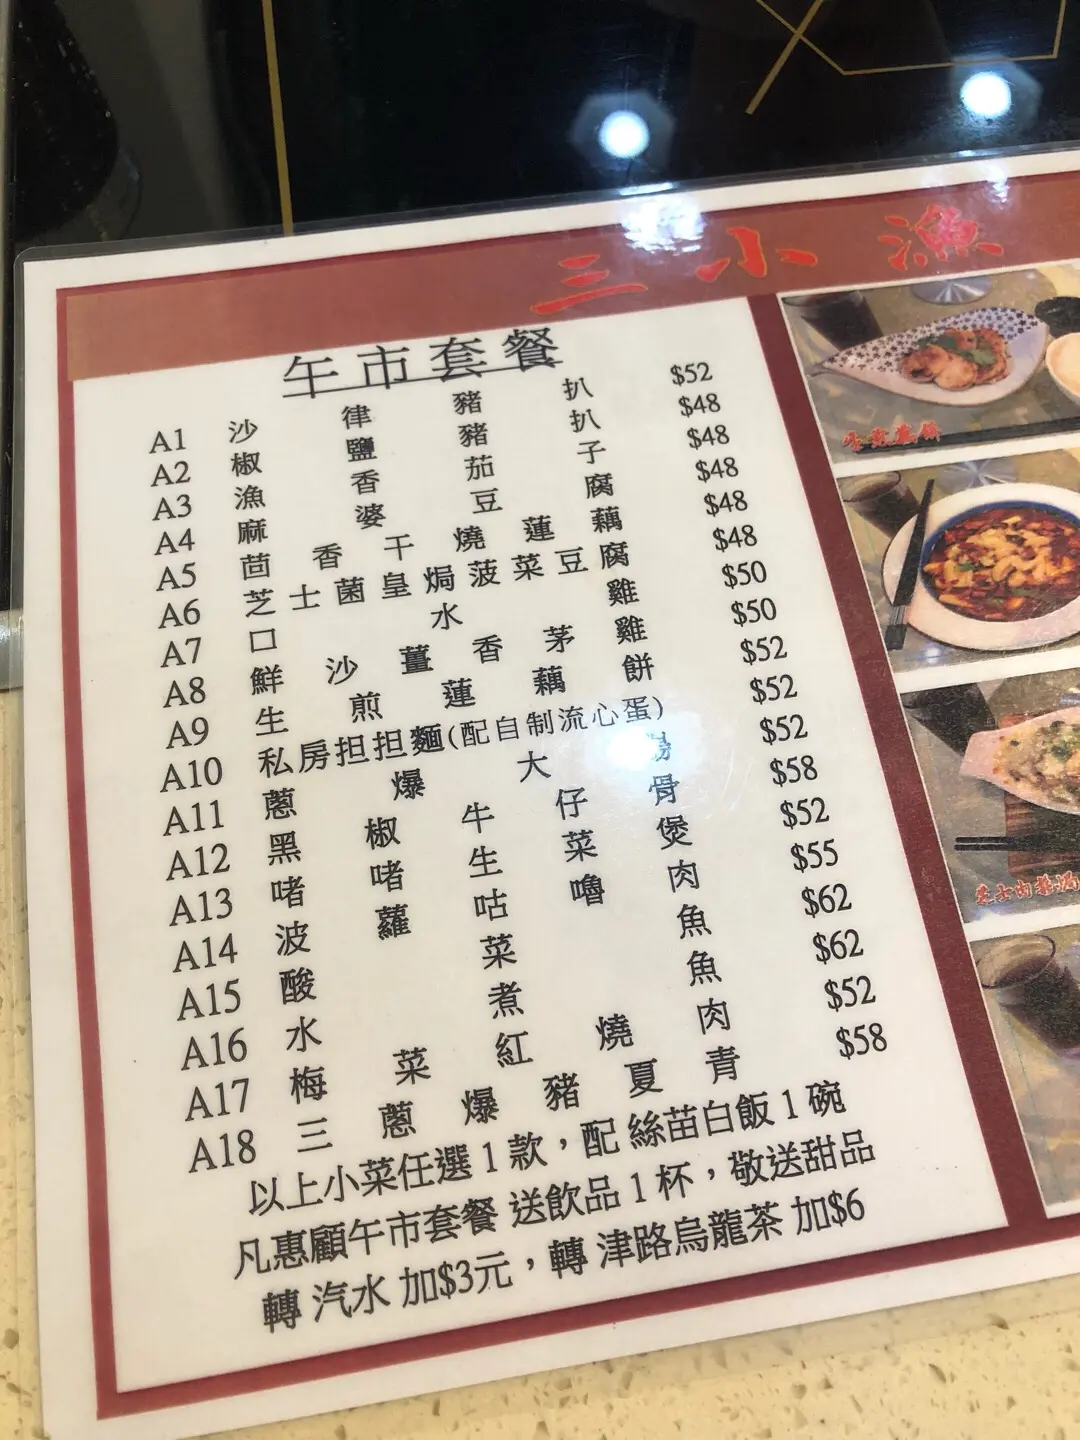 三小漁
午市套餐
A1 沙律豬扒 $52
A2 椒鹽豬扒 $48
A3 漁香茄子 $48
A4 麻婆豆腐 $48
A5 茴香干燒蓮藕 $48
A6 芝士菌皇焗菠菜豆腐 $48
A7 口水雞 $50
A8 鮮沙薑香茅雞 $50
A9 生煎蓮藕餅 $52
A10 私房担担麵(配自制流心蛋) $52
A11 蔥爆大腸 $52
A12 黑椒牛仔骨 $58
A13 啫啫生菜煲 $52
A14 波蘿咕嚕肉 $55
A15 酸菜魚 $62
A16 水煮魚 $62
A17 梅菜紅燒肉 $52
A18 三蔥爆豬夏青 $58
以上小菜任選1款，配 絲苗白飯1碗
凡惠顧午市套餐 送飲品1杯，敬送甜品
轉 汽水 加$3元，轉 津路烏龍茶 加$6